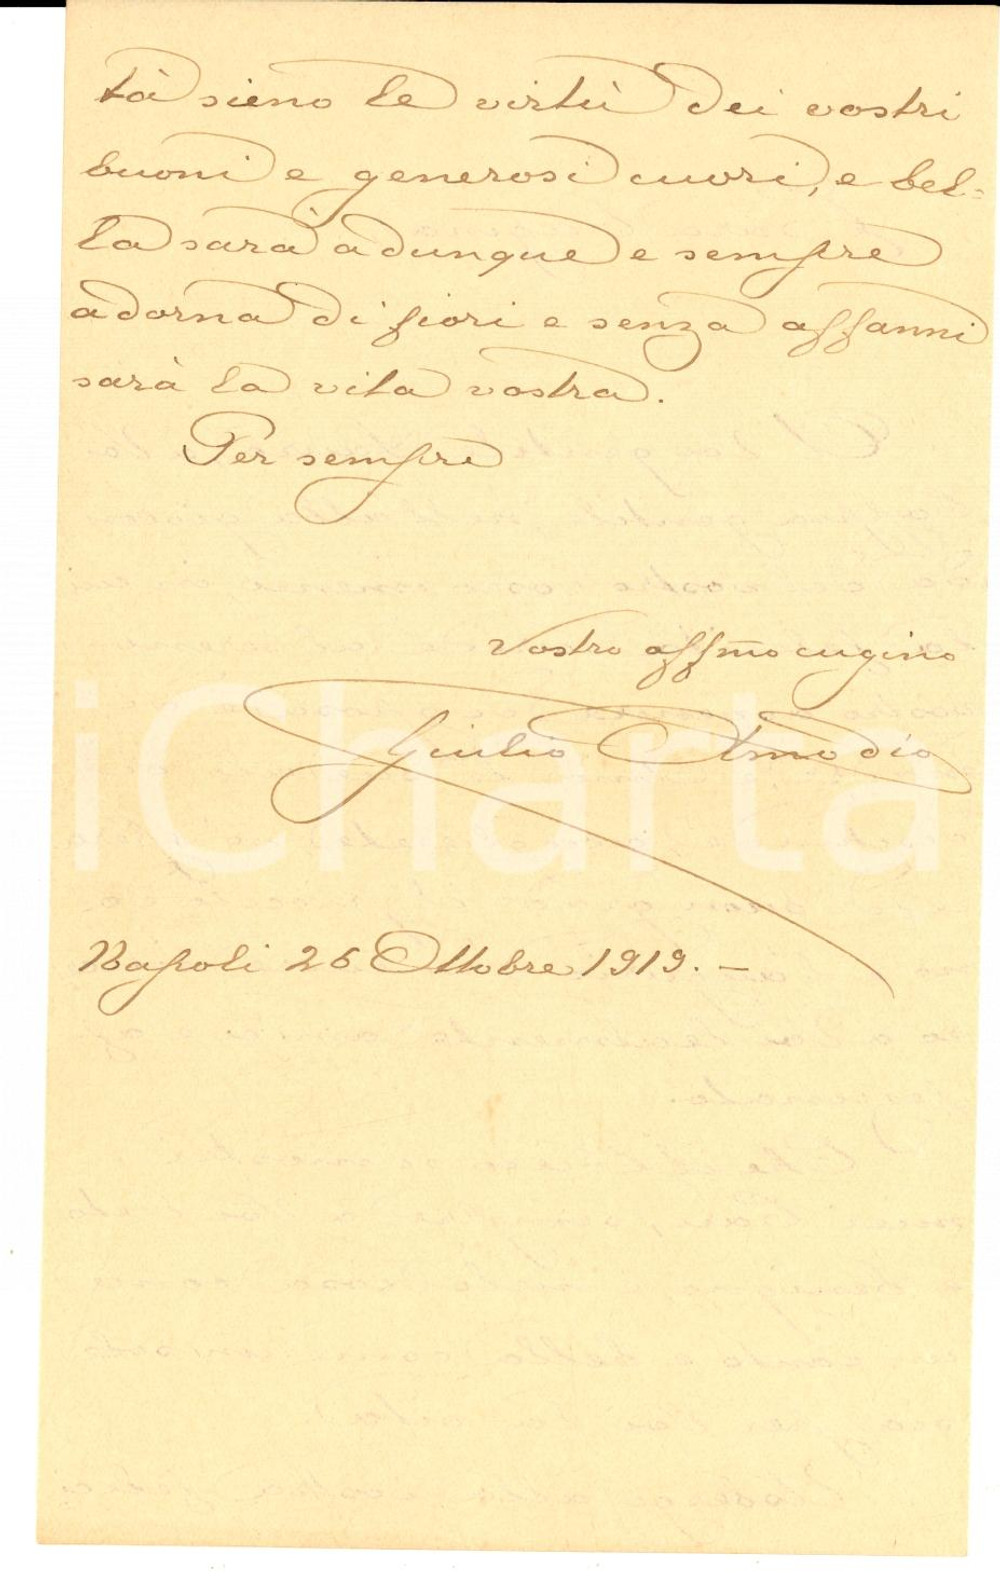 tà sieno le virtù dei vostri
buoni e generosi cuori, e bel=
la sarà adunque e sempre
adorna di fiori e senza affanni
sarà la vita vostra.
Per sempre
Vostro affmo cugino
Giulio Amodio
iCharta
Napoli 26 Ottobre 1919. –